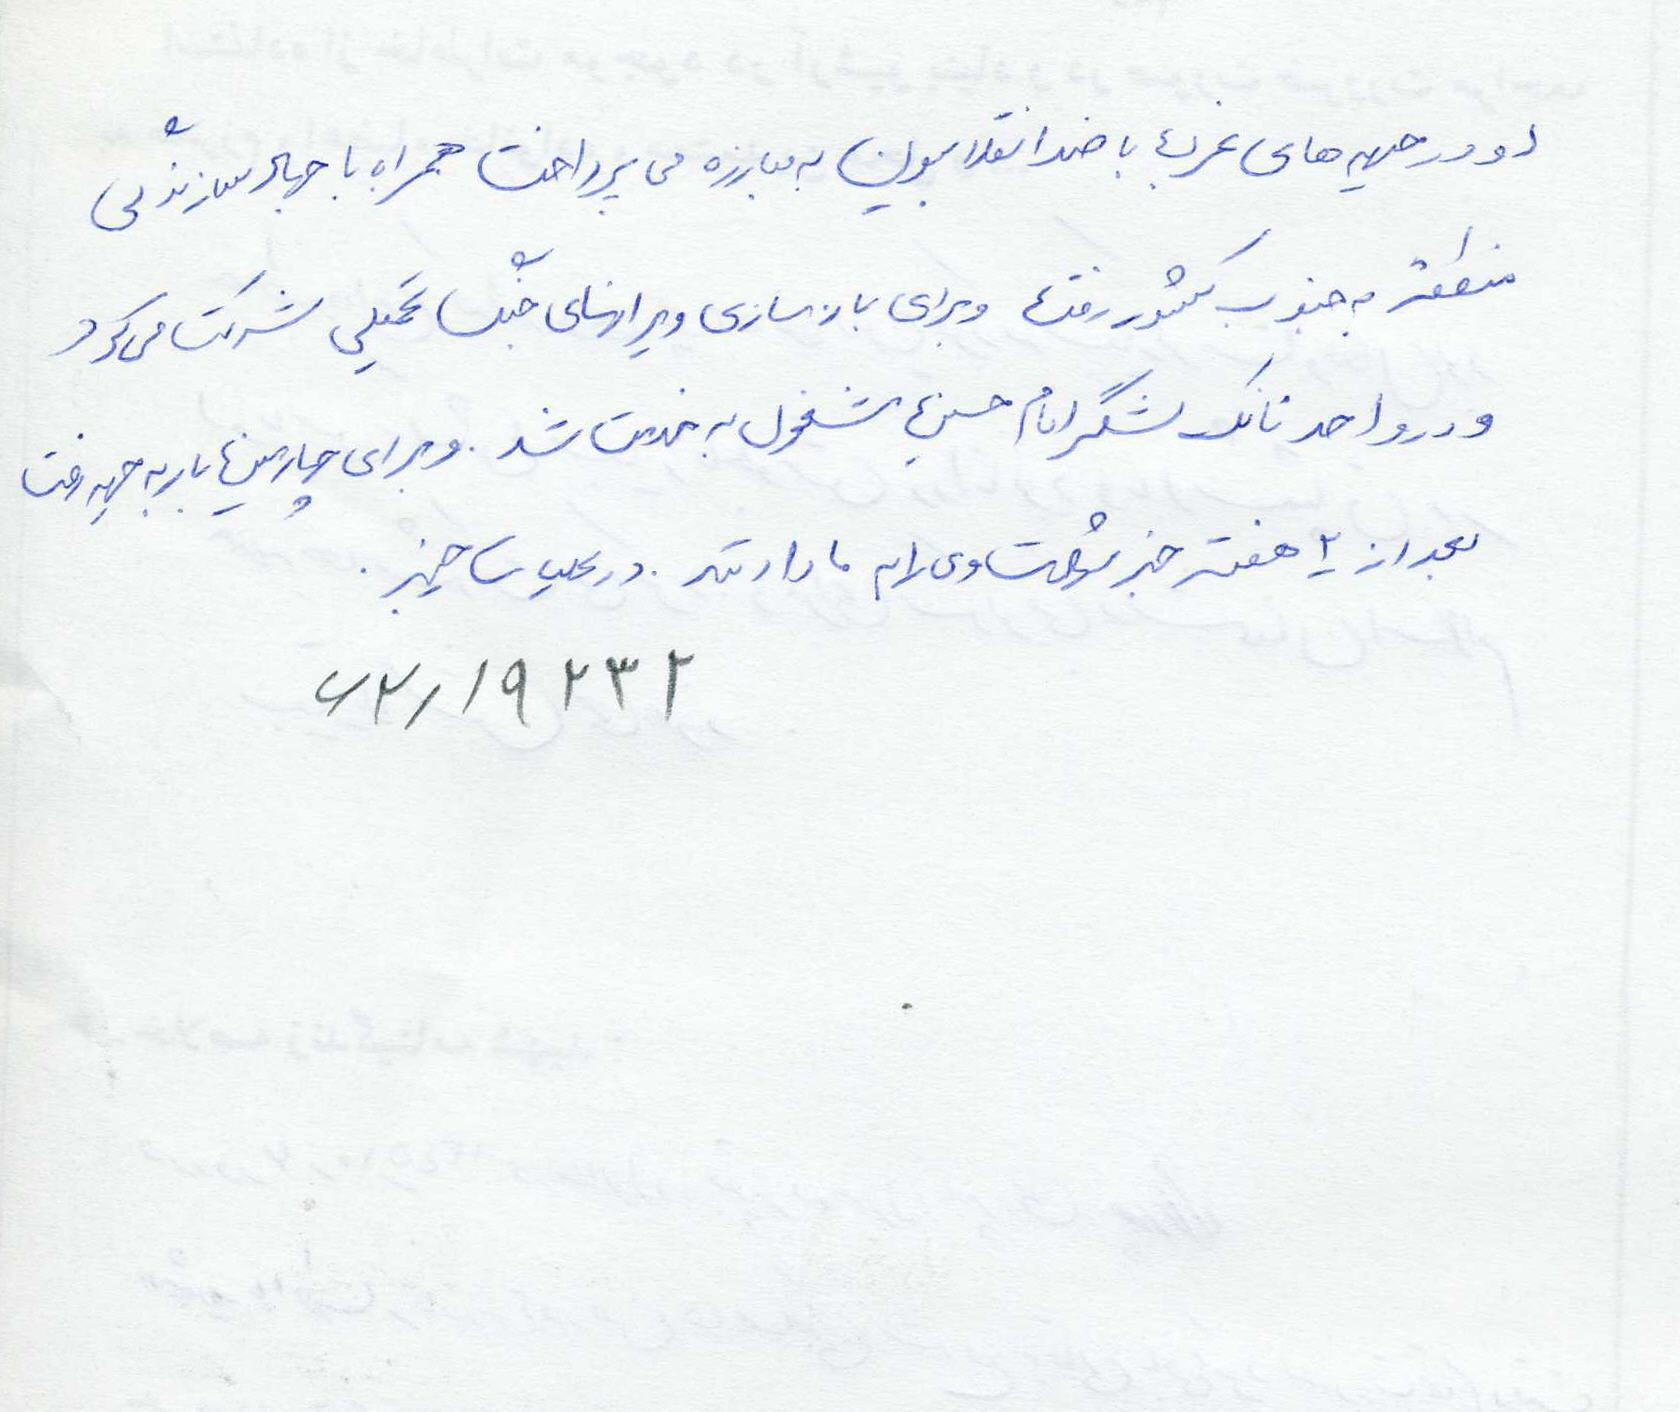 او در جبهه های غرب با ضد انقلابیون به مبارزه می پرداخت همراه با جهاد سازندگی
منطقه به جنوب کشور رفت و برای بازسازی ویرانهای جنگ تحمیلی شرکت می کرد
و در واحد تانک لشگر امام حسین مشغول به خدمت شد. و برای چهارمین بار به جبهه رفت
بعد از ۲ هفته خبر شهادت وی را به ما دادند. در عملیات خیبر.
۶۲/۱۹۲۳۲